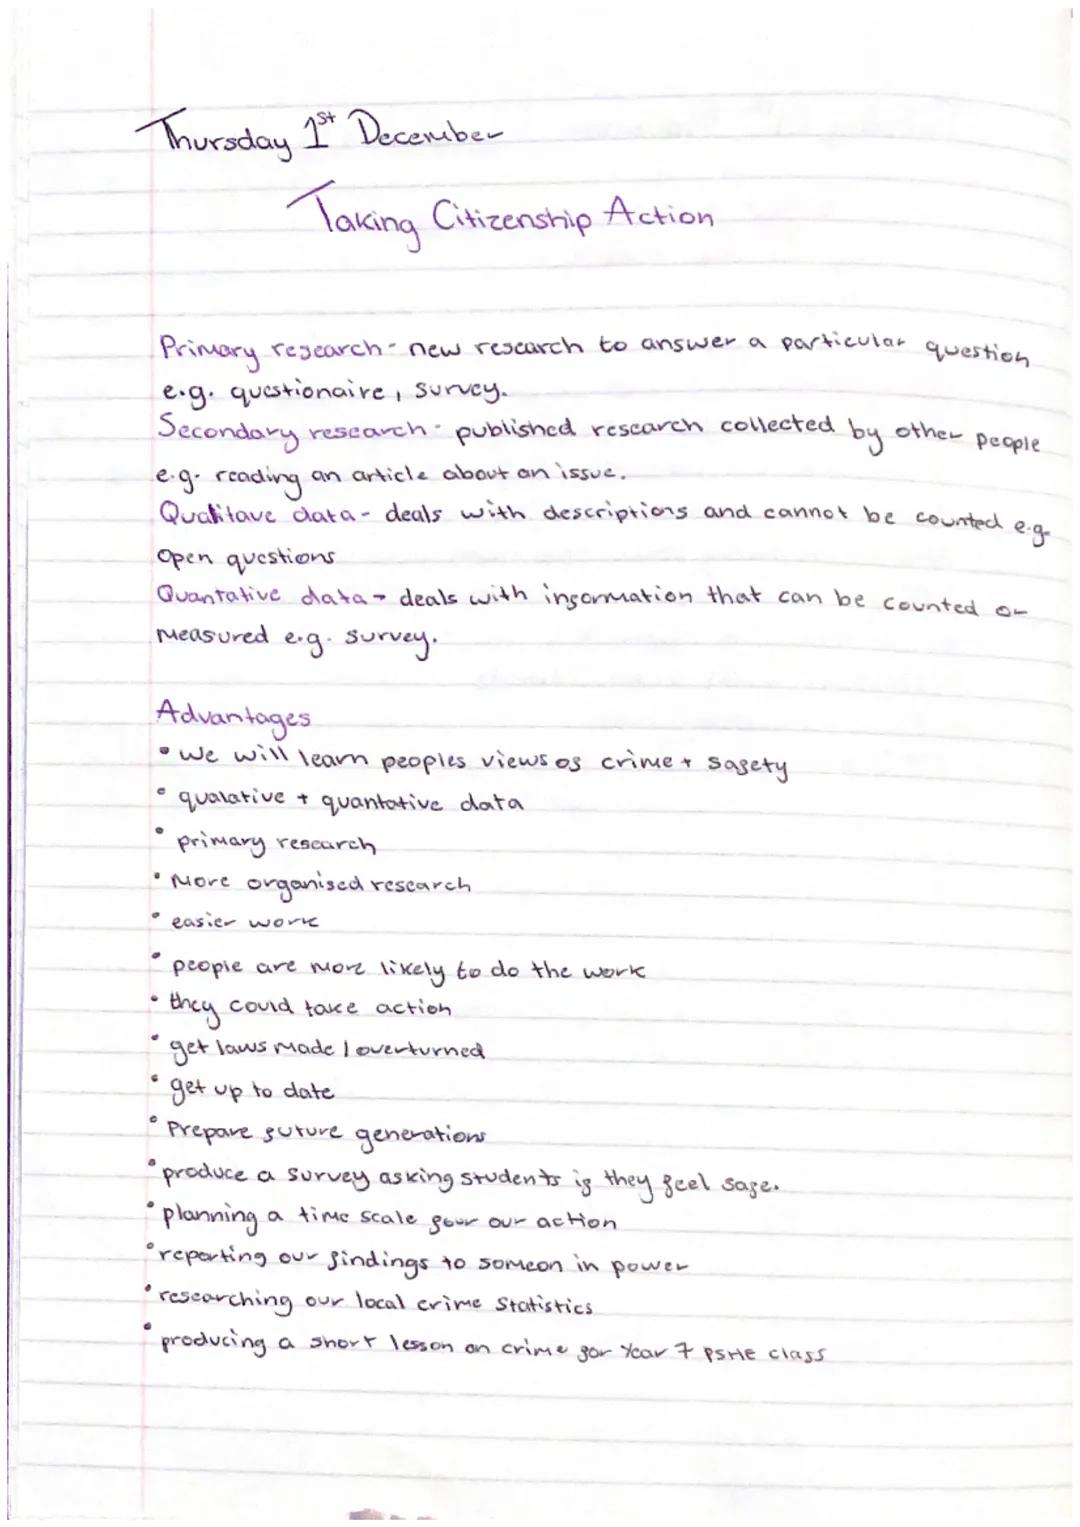 Thursday 1st December
Taking Citizenship Action
Primary research - new research to answer a particular question
e.g. questionaire, survey.
Secondary research - published research collected by other people
e.g. reading an article about an issue.
Qualitave data - deals with descriptions and cannot be counted e.g.
open questions
Quantative data - deals with information that can be counted or
measured e.g. survey.
Advantages
• We will learn peoples views of crime + safety
• qualative + quantative data
• primary research
• More organised research
• easier work
• people are more likely to do the work
• they could take action
• get laws made / overturned
• get up to date
• Prepare future generations
• produce a survey asking students if they feel safe.
• planning a time scale four our action
• reporting our findings to someon in power
• researching our local crime statistics
• producing a short lesson on crime for Year 7 PSHE class